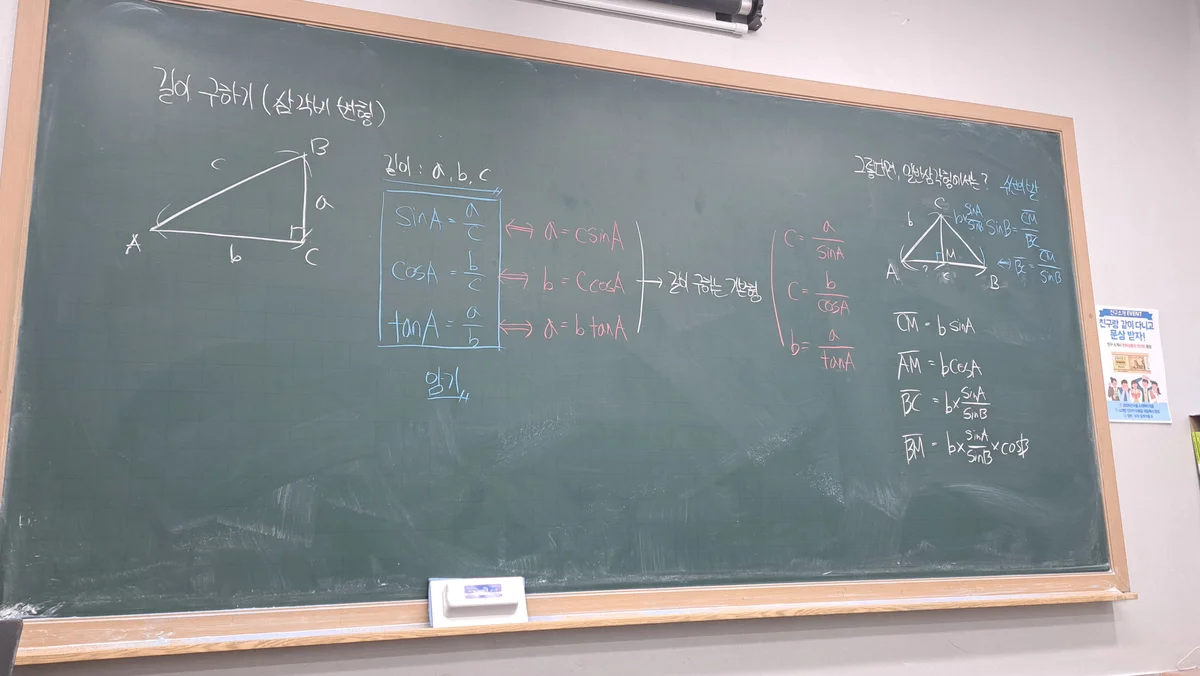 길이 구하기 (삼각비 변형)
B
c
a
A
b
C
길이 : a, b, c
sinA = a/c ⟺ a = csinA
cosA = b/c ⟺ b = ccosA
tanA = a/b ⟺ a = b tanA
암기
→ 길이 구하는 기본형
c = a/sinA
c = b/cosA
b = a/tanA
그렇다면, 일반삼각형에서는? 수선의 발
C
b
b× sinA/sinB
A
M
c
B
sinB = CM/BC
⟺ BC = CM/sinB
CM = b sinA
AM = bcosA
BC = b× sinA/sinB
BM = b× sinA/sinB ×cosB
친구소개 EVENT
친구랑 같이 다니고
문상 받자!